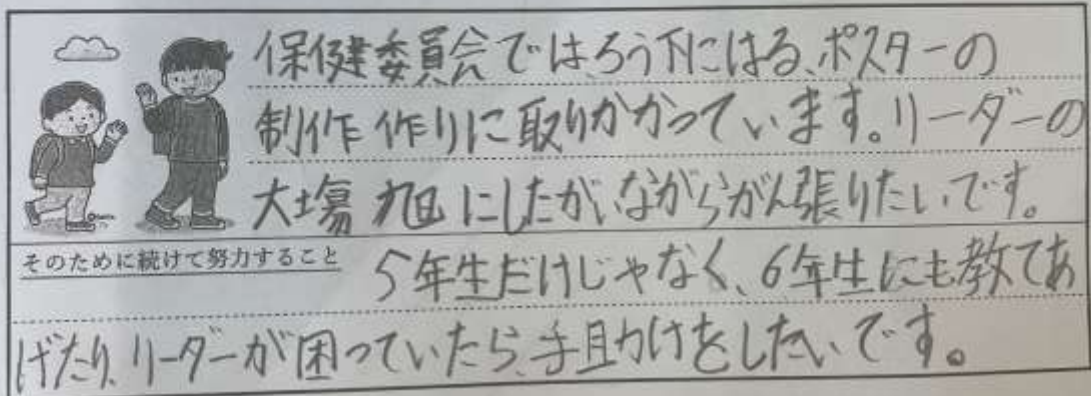 保健委員会では、ろう下にはる、ポスターの
制作作りに取りかかっています。リーダーの
大場旭にしたがいながらがん張りたいです。
そのために続けて努力すること
5年生だけじゃなく、6年生にも教てあ
げたり、リーダーが困っていたら、手助けをしたいです。